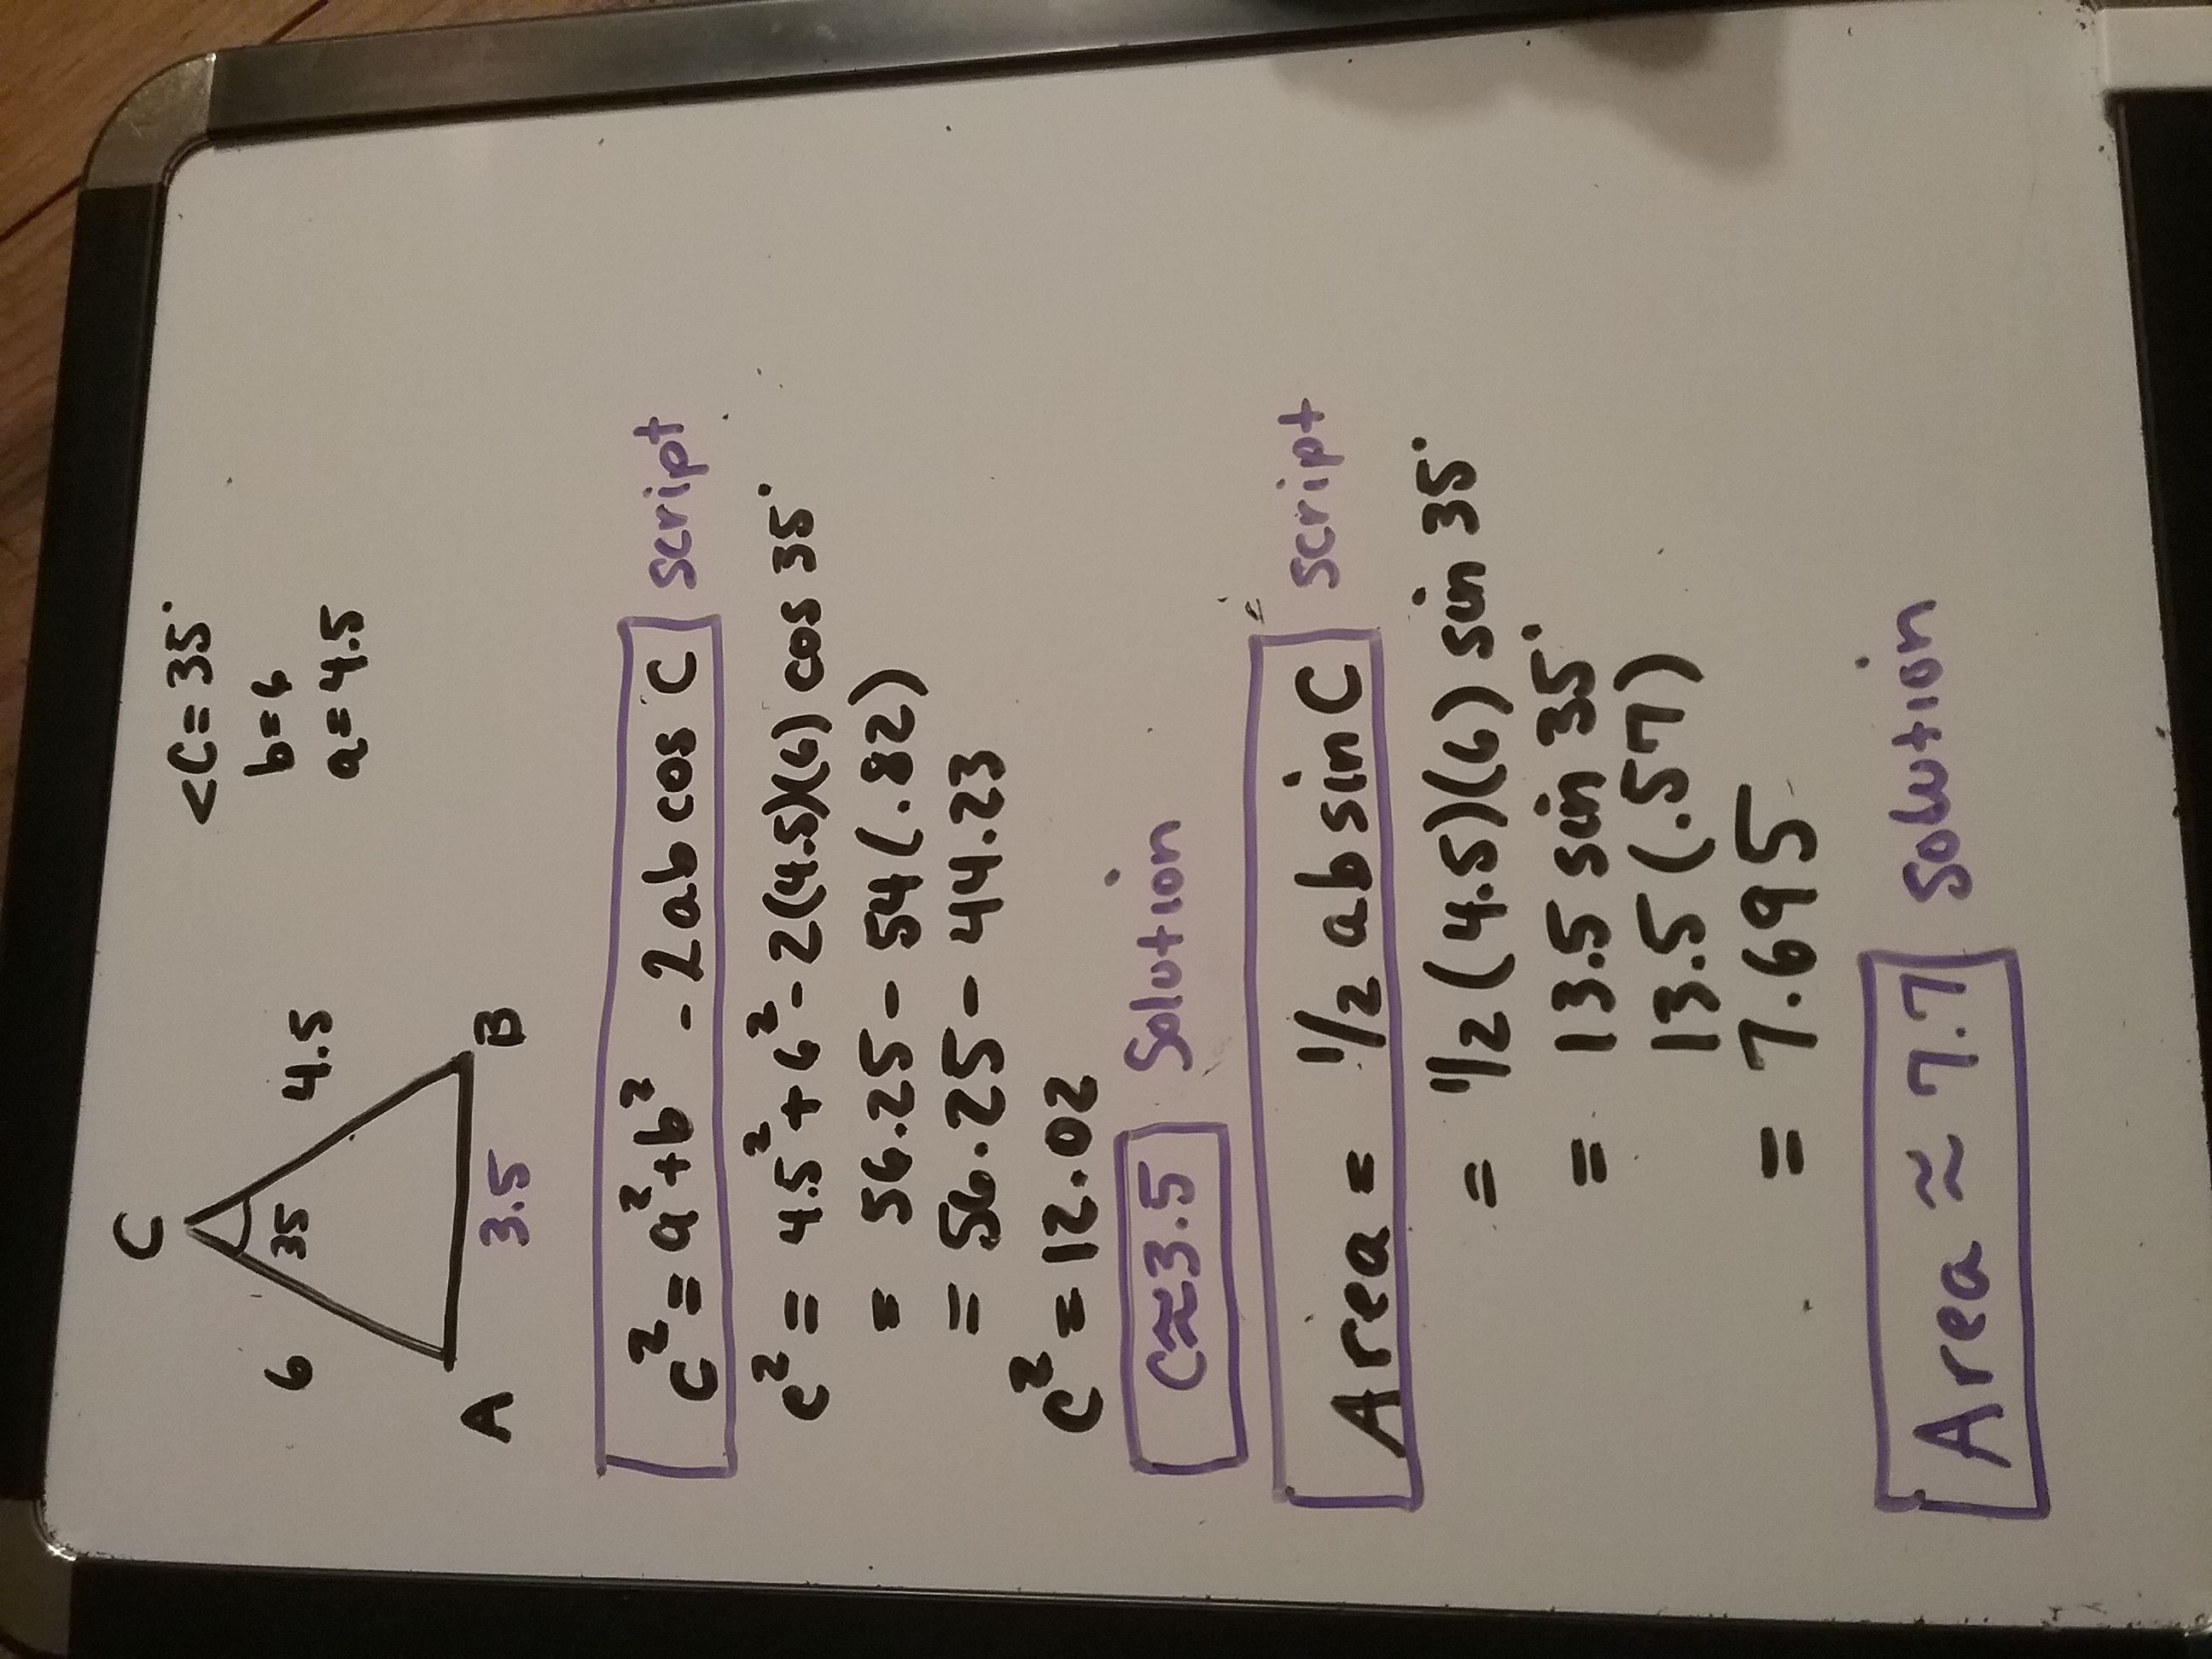 C
<C = 35°
6
4.5
b = 6
35
a = 4.5
A
B
3.5
c² = a² + b² - 2ab cos C script
c² = 4.5² + 6² - 2(4.5)(6) cos 35°
= 56.25 - 54(.82)
= 56.25 - 44.23
c² = 12.02
C≈3.5 Solution
Area = 1/2 ab sin C script
= 1/2 (4.5)(6) sin 35°
= 13.5 sin 35°
13.5 (.57)
= 7.695
Area ≈ 7.7 Solution